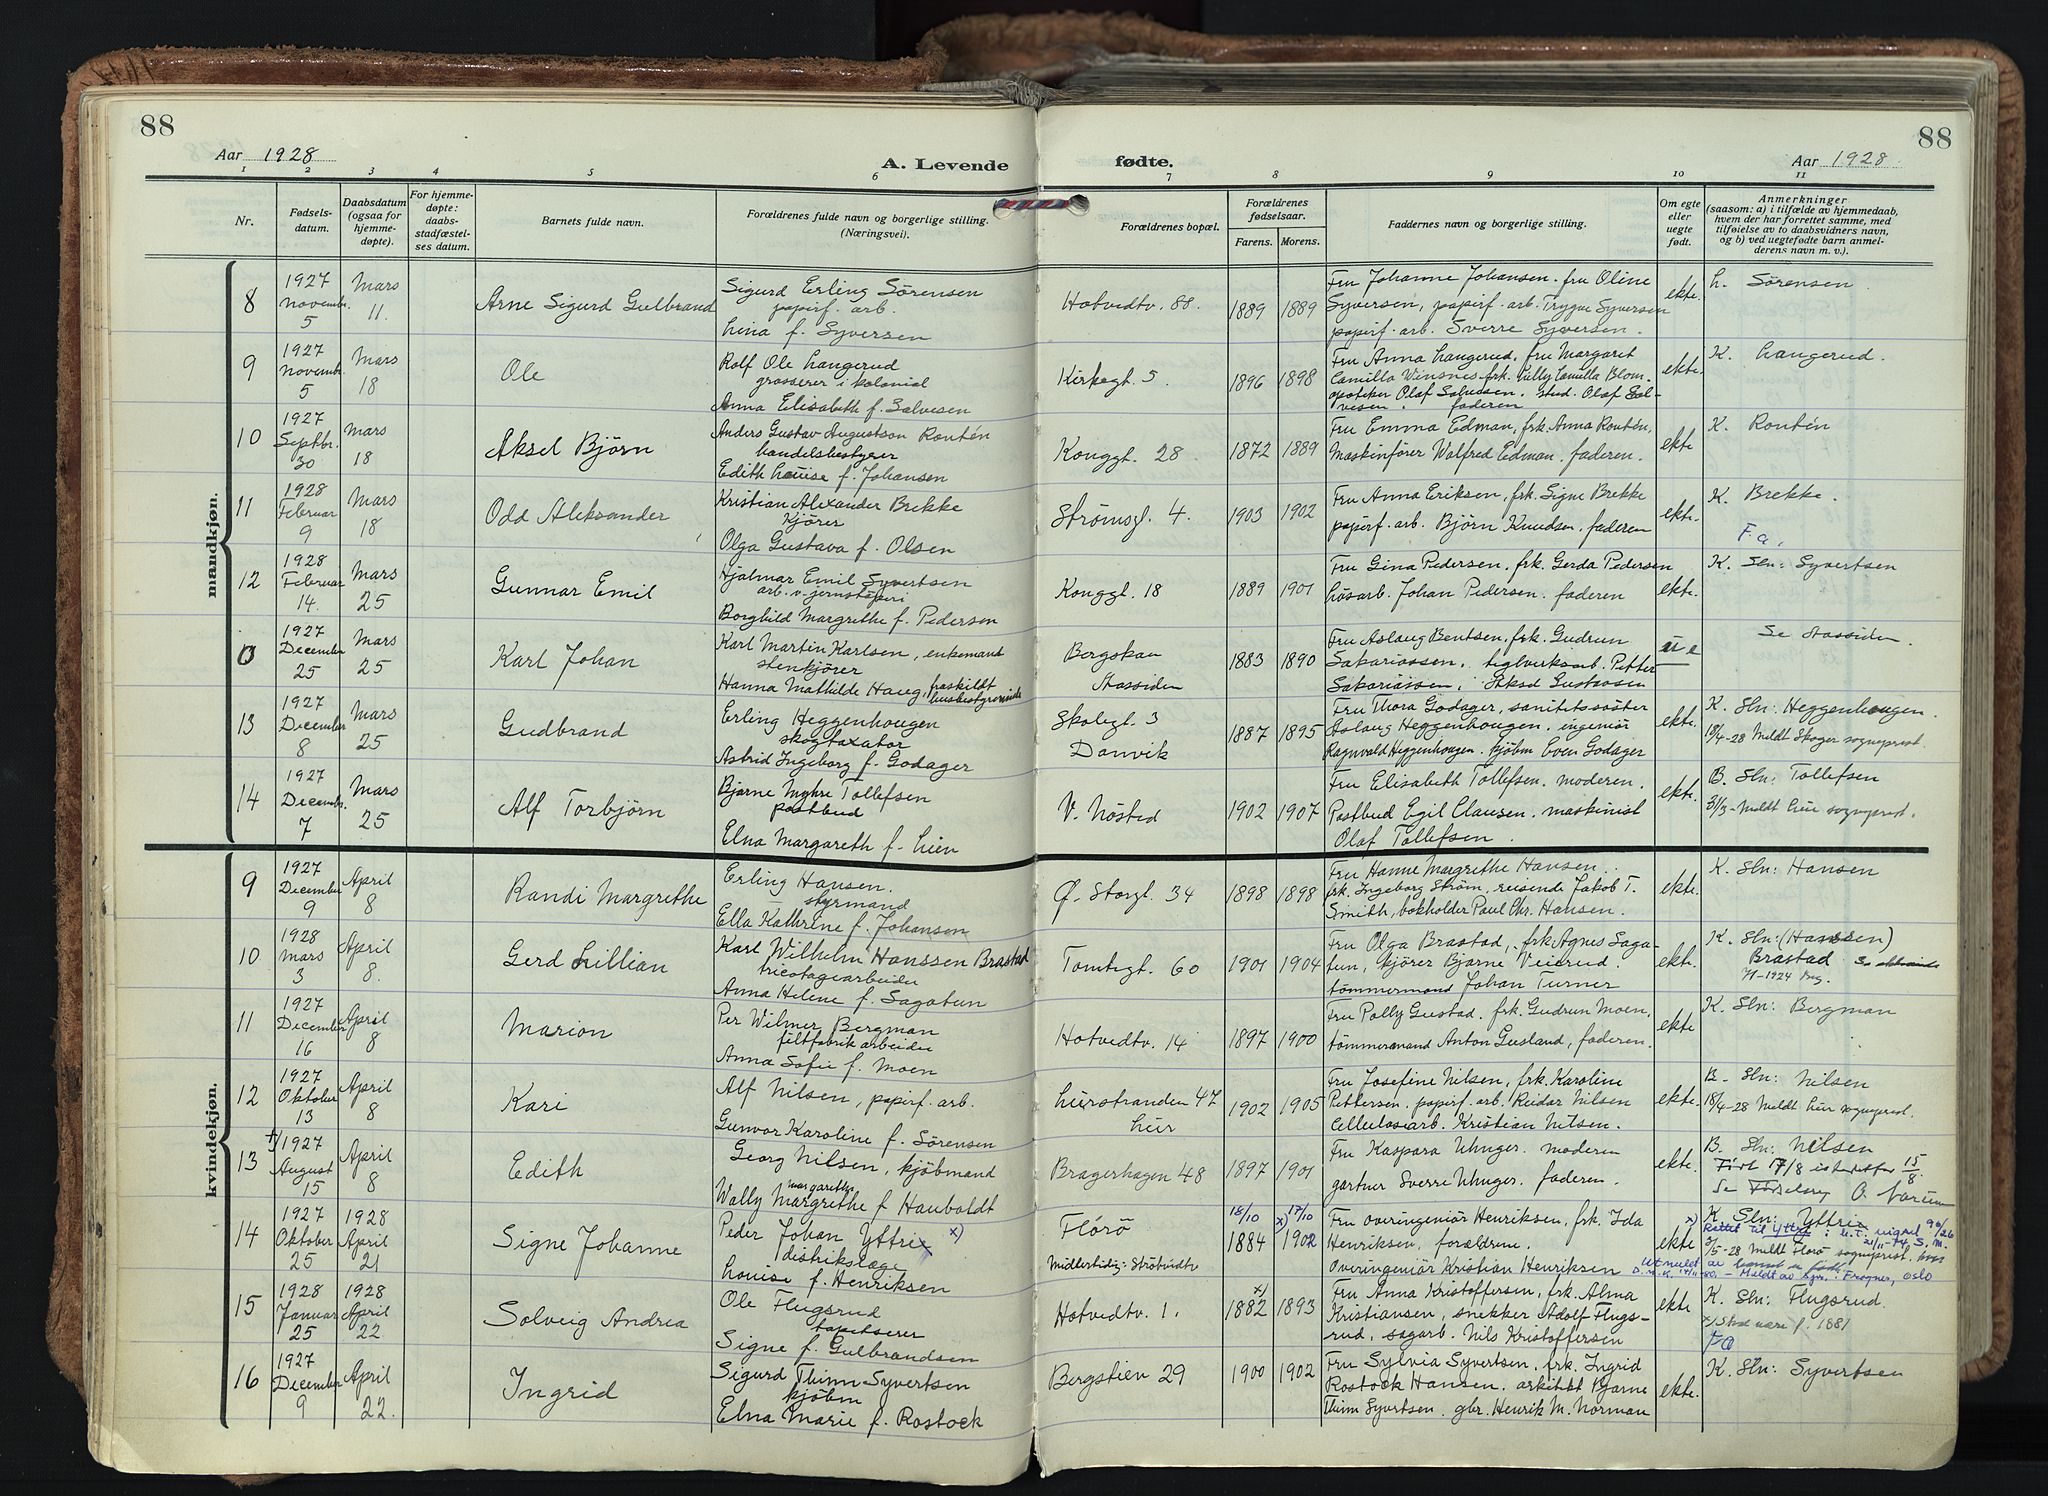 88
88
Aar 1928
A. Levende
fødte.
Aar 1928
1 2 3 4 5 6 7 8 9 10 11
Nr.
Fødsels-
datum.
Daabsdatum
(ogsaa for
hjemme-
døpte).
For hjemme-
døpte:
daabs-
stadfæstel-
ses datum.
Barnets fulde navn.
Forældrenes fulde navn og borgerlige stilling.
(Næringsvei).
Forældrenes bopæl.
Forældrenes
fødselsaar.
Farens. Morens.
Faddernes navn og borgerlige stilling.
Om egte
eller
uegte
født.
Anmerkninger
(saasom: a) i tilfælde av hjemmedaab,
hvem der har forrettet samme, med
tilføielse av to daabsvidners navn,
og b) ved uegtefødte barn anmel-
derens navn m. v.).
mandkjøn.
8
1927
Novembr.
5
Mars
11.
Arne Sigurd Gulbrand
Sigurd Erling Sörensen
papirf. arb.
Lina f. Syversen
Hotvedtv. 88.
1889 1889
Fru Johanne Johansen. fru Oline
Syversen, papirf. arb. Trygve Syversen
papirf. arb. Sverre Syversen.
ekte.
L. Sørensen
9
1927
Novembr.
5
Mars
18
Ole
Rolf Ole Langerud
grosserer i kolonial
Anna Elisabeth f. Salvesen
Kirkegt. 5.
1896 1898
Fru Anna Langerud, fru Margaret
Camilla Winsnes frk. Lilly Camilla Blom.
apotiker Olaf Salvesen. stud. Olaf Sal-
vesen. faderen
ekte.
K. Langerud.
10
1927
Septbr.
30
Mars
18
Aksel Björn
Anders Gustav Augustson Rontén
handelsbestyrer
Edith Louise f. Johansen
Konggt. 28.
1872 1889
Fru Emma Edman, frk. Anna Rontén,
Maskinfører Walfred Edman. faderen.
ekte
K. Rontén
11
1928
Februar
9
Mars
18
Odd Aleksander
Kristian Alexander Brekke
Kjörer
Olga Gustava f. Olsen
Strömsgt. 4.
1903 1902
Fru Anna Eriksen, frk. Signe Brekke
papirf. arb. Björn Knudsen. faderen
ekte.
K. Brekke.
F a.
12
1928
Februar
14.
Mars
25
Gunnar Emil
Hjalmar Emil Syvertsen
arb. v. jernstöperi
Borghild Margrethe f. Pedersen
Konggt. 18
1889 1901
Fru Gina Pedersen. frk. Gerda Pedersen
Løsarb. Johan Pedersen. faderen
ekte.
K. Sln: Syvertsen
0
1927
December
25
Mars
25
Karl Johan
Karl Martin Karlsen, enkemand
stenkjörer
Hanna Mathilde Haug, fraskildt
husbestyrerinde
Bergskau
Aassiden
1883 1890
Fru Aslaug Bentsen. frk. Gudrun
Sakariassen. teglverksarb. Petter
Sakariassen. Aksel Gustavsen
u e
Se Aassiden
13
1927
December
8
Mars
25
Gudbrand
Erling Heggenhougen
skogtaxator
Astrid Ingeborg f. Godager
Skolegt. 3
Danvik
1887 1895
Fru Thora Godager, sanitetssöster
Aslaug Heggenhougen. ingeniör
Ragnvald Heggenhougen. kjöbm Even Godager
ekte.
K. Sln: Heggenhougen.
18/4-28 Meldt Skoger sogneprest.
14
1927
Decembr.
7
Mars
25
Alf Torbjörn
Bjarne Myhre Tollefsen
postbud
Elna Margareth f. Lien
V. Nøsted
1902 1907
Fru Elisabeth Tollefsen. moderen.
Postbud Egil Clausen. maskinist
Olaf Tollefsen.
ekte.
B. Sln: Tollefsen
31/3-Meldt Lier sogneprest.
kvindekjøn.
9
1927
December
9
April
8
Randi Margrethe
Erling Hansen.
styrmand
Ella Kathrine f. Johansen
Ø. Storgt. 34
1898 1898
Fru Hanne Margrethe Hansen.
frk. Ingeborg Ström, reisende Jakob T.
Smith, bokholder Paul Chr. Hansen.
ekte.
K. Sln: Hansen
10
1928
Mars
3
April
8.
Gerd Lillian
Karl Wilhelm Hanssen Brastad
tricotagearbeider
Anna Helene f. Sagatun
Tomtegt. 60
1901 1904
Fru Olga Brastad, frk. Agnes Saga-
tun, kjörer Bjarne Veierud.
tömmermand Johan Turner
ekte.
K. Sln: (Hanssen)
Brastad
7/1-1924 Beg.
11
1927
December
16
April
8
Marion
Per Wilmer Bergman
filtfabrikarbeider
Anna Sofie f. Moen
Hotvedtv. 14
1897 1900
Fru Polly Gustad. frk. Gudrun Moen,
tömmermand Anton Gusland, faderen.
ekte
K. Sln: Bergman
12
1927
Oktober
13
April
8
Kari
Alf Nilsen, papirf. arb.
Gunvor Karoline f. Sörensen
Lierstranden 47
Lier
1902 1905
Fru Josefine Nilsen, frk. Karoline
Pettersen. papirf. arb. Reidar Nilsen
Cellulosearb. Kristian Nilsen.
ekte.
B. Sln: Nilsen
18/4-28 Meldt Lier sogneprest.
13
1927
August
15
April
8
Edith
Georg Nilsen, kjöbmand
Margarethe
Wally Margrethe f Hauboldt
Bragerhagen 48
1897 1901
Fru Kaspara Unger. moderen
gartner Sverre Unger. faderen.
ekte.
B. Sln: Nilsen
Ført 17/8 istedetfor 15/8
14
1927
Oktober
25
1928
April
21
Signe Johanne
Peder Johan Yttrie x)
distriktslæge
Louise f. Henriksen
Florö
Midlertidig: Ströbudtv
18/10
1884
x) 17/10
1902
Fru overingeniör Henriksen, frk. Ida
Henriksen, forældrene.
Overingeniör Kristian Henriksen
ekte
x) K. Sln: Yttrie
Rettet til Yttry
3/5-28 Meldt Florö sogneprest. hvor
av barnet er født.
Utmeldt
Meldt av spr. i Frogner, Oslo
15
1928
Januar
25
1928
April
22
Solveig Andrea
Ole Flugsrud
tapetserer
Signe f. Gulbrandsen
Hotvedtv. 1.
x)
1882 1893
Fru Anna Kristoffersen, frk. Alma
Kristiansen, snekker Adolf Flugs-
rud, sagarb. Nils Kristoffersen
ekte
K. Sln: Flugsrud.
x) skal være f. 1881
16
1927
December
9
April
22.
Ingrid
Sigurd Thinn Syvertsen
kjöbm
Elna Marie f. Rostock
Bergstien 29
1900 1902
Fru Sylvia Syvertsen, frk. Ingrid
Rostock Hansen. arkitekt Bjarne
Thinn Syvertsen. gbr. Henrik M. Norman
ekte.
K. Sln: Syvertsen